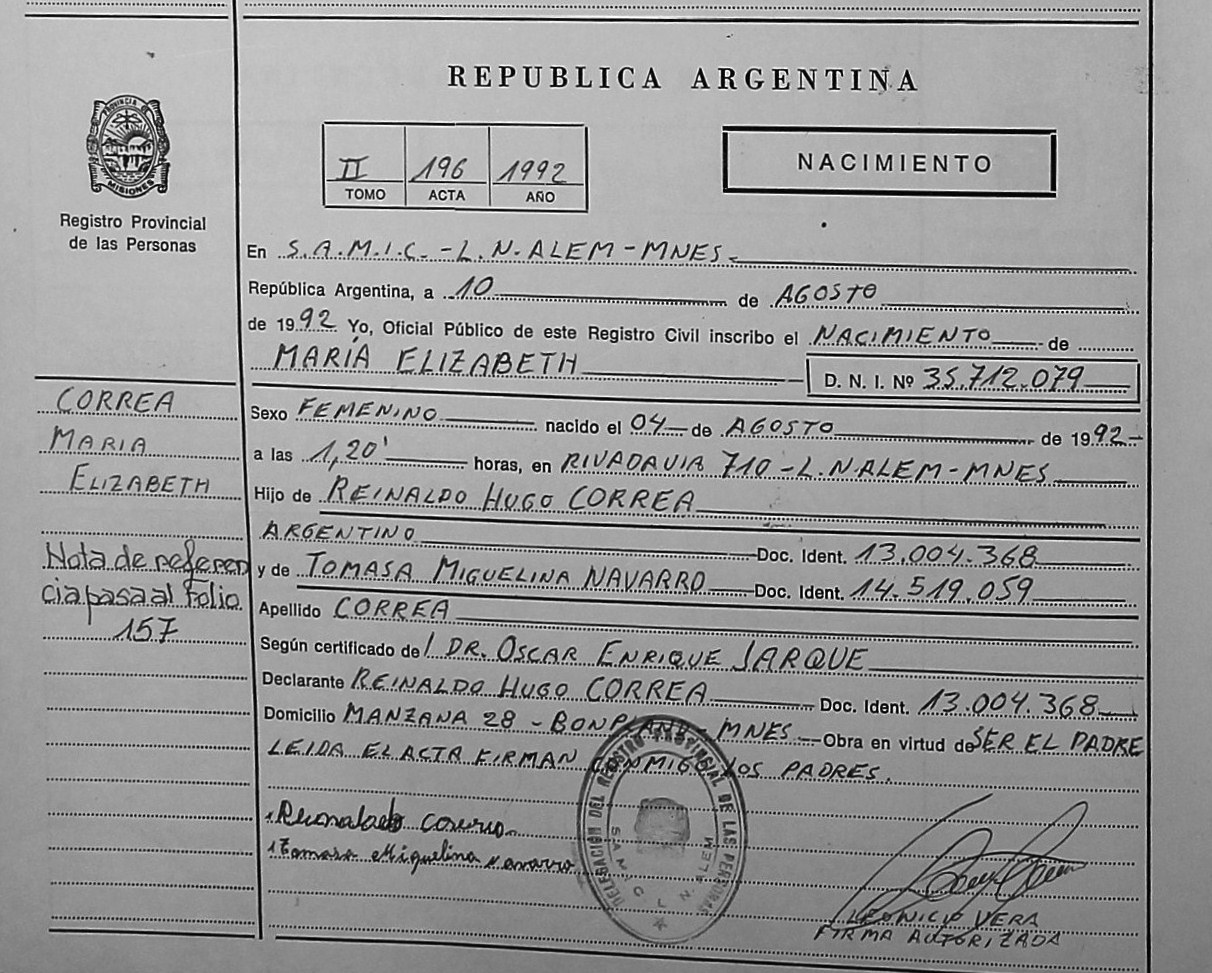 REPUBLICA ARGENTINA
PROVINCIA DE MISIONES
Registro Provincial
de las Personas
II 196 1992
TOMO ACTA AÑO
NACIMIENTO
En S.A.M.I.C.-L.N.ALEM-MNES-
República Argentina, a 10 de AGOSTO
de 1992 Yo, Oficial Público de este Registro Civil inscribo el NACIMIENTO de
MARÍA ELIZABETH D. N. I. Nº 35.712.079
CORREA
MARIA
ELIZABETH
Nota de referen
cia pasa al Folio
157
Sexo FEMENINO nacido el 04 de AGOSTO de 1992-
a las 1,20' horas, en RIVADAVIA 710-L.N.ALEM-MNES
Hijo de REINALDO HUGO CORREA
ARGENTINO Doc. Ident. 13.004.368
y de TOMASA MIGUELINA NAVARRO Doc. Ident. 14.519.059
Apellido CORREA
Según certificado de/ DR. OSCAR ENRIQUE JARQUE
Declarante REINALDO HUGO CORREA Doc. Ident. 13.004.368
Domicilio MANZANA 28 - BONPLAND - MNES Obra en virtud de SER EL PADRE
LEIDA EL ACTA FIRMAN CONMIGO LOS PADRES.
Tomasa Miguelina Navarro
DELEGACIÓN DEL REGISTRO PROVINCIAL DE LAS PERSONAS
L. N. ALEM
LEONICIO VERA
FIRMA AUTORIZADA